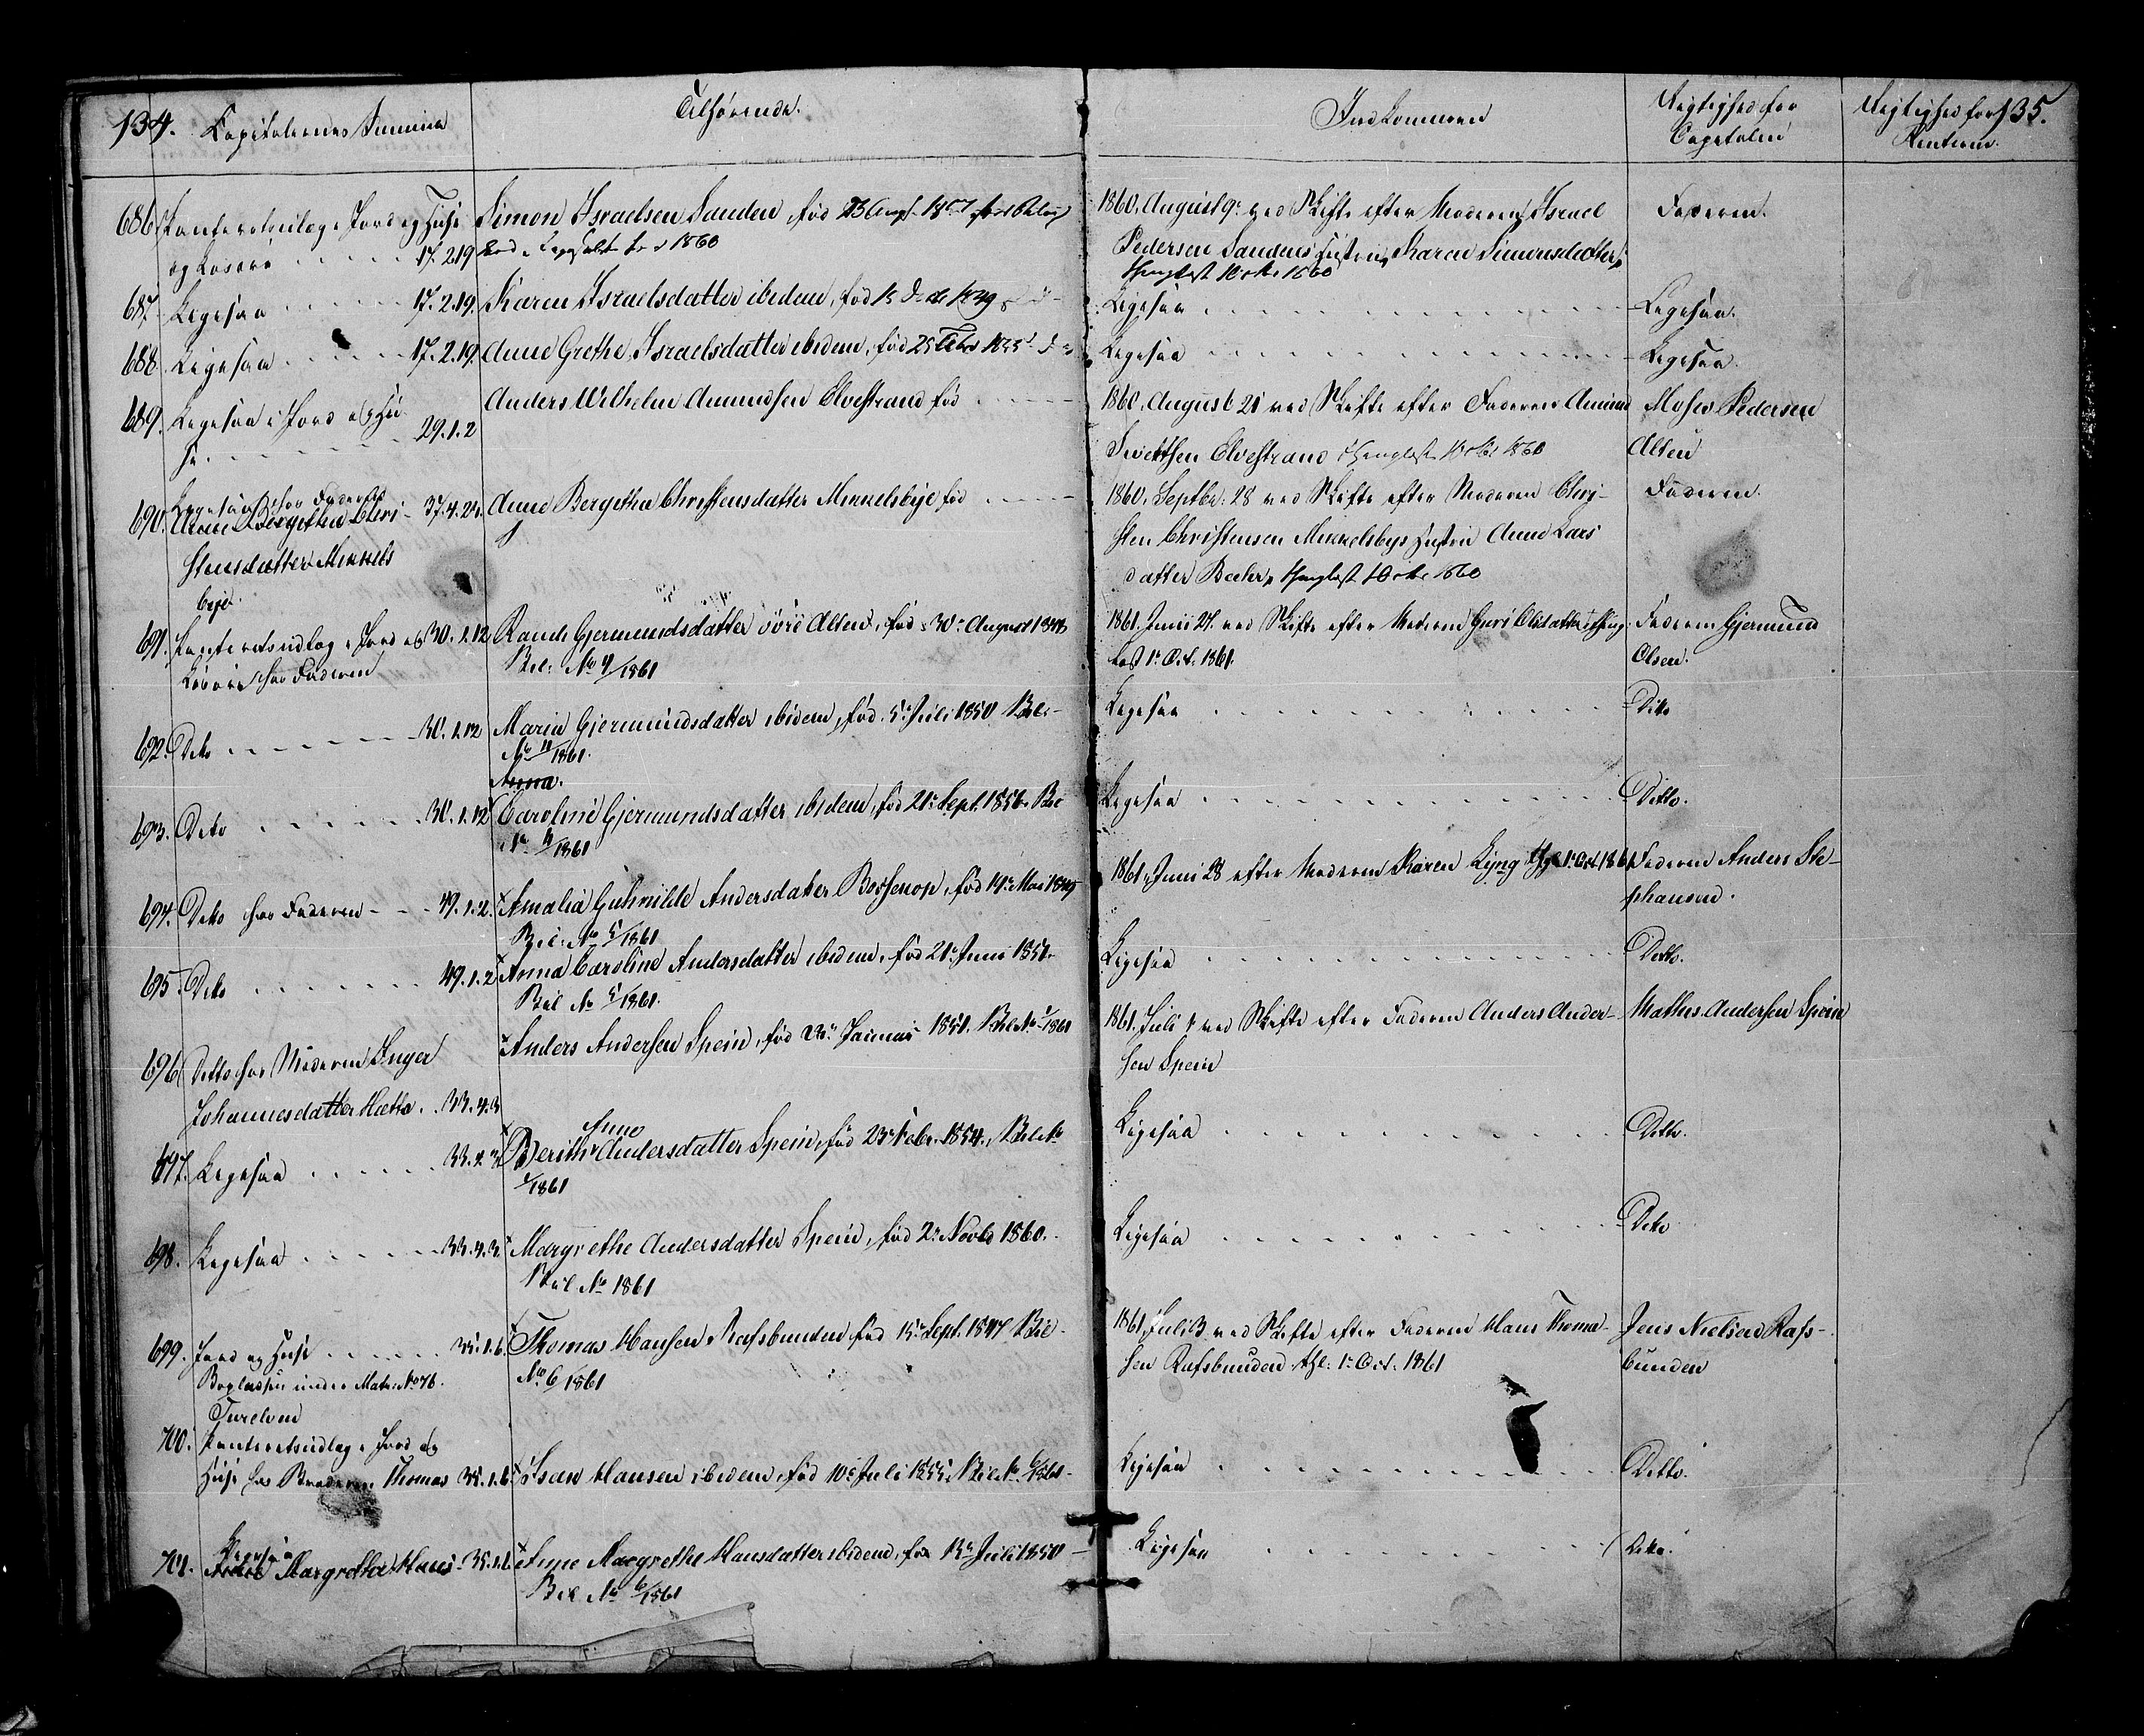 134. Capitalernes Summa
Tilhørende.
Indkommen
Vigtighed for
Capitalen
Vigtighed for 135.
Renterne.
686. Panteretsudlæg i Jord og Huse
og Løsøre 17.2.19
Simon Israelsen Sanden, fød 23 Augt.
1860
1860, August 9de ved Skifte efter Moderen, Israel
Pedersen Sandens Hustru, Karen Simonsdatter,
thinglæst 10 1860
Faderen.
687. Ligesaa 17.2.19.
Karen Israelsdatter ibidem, fød
Ligesaa
Ligesaa.
688. Ligesaa 17.2.19.
Anne Grethe Israelsdatter ibidem, fød 25 Febr
Ligesaa
Ligesaa.
689. Ligesaa i Jord og Hu-
se. 29.1.2
Anders Wilhelm Amundsen Elvestrand fød
1860, August 21 ved Skifte efter Faderen Amund
Sivertsen Elvestrand thinglæst 1860
Moses Pedersen
Alten
690. Ligesaa hos Faderen
Anne Bergethe Chri- 37.4.21.
stensdatter Mikkels
bye.
Anne Bergethe Christensdatter Mikkelsbye fød
1860, Septbr. 28 ved Skifte efter Moderen Chri-
sten Christensen Mikkelsbys Hustru Anne Lars
datter Bæhr, thinglæst 10 1860
Faderen.
691. Panteretsudlæg i Jord og 30.1.12
Løsøre hos Faderen
Randi Gjermundsdatter øvre Alten, fød 30te August 1848
Bil. No 4/1861
1861. Junii 27. ved Skifte efter Moderen Guri Olsdatter thing-
læst 1te Oct. 1861.
Faderen Gjermund
Olsen.
692. Dito 30.1.12
Maria Gjermundsdatter ibidem, fød. 5te Juli 1850 Bil.
No 11/1861.
Ligesaa
Dito
Anna.
693. Dito 30.1.12
Caroline Gjermundsdatter ibidem, fød 21te Sept. 1856. Bil
No 11/1861
Ligesaa
Ditto.
694. Dito hos Faderen 49.1.2.
Amalia Guhnilde Andersdatter Bossekop, fød 14de Mai 1849
Bil. No 5/1861
1861, Juni 28 efter Moderen Karen Lyng thgl 1te Oct. 1861.
Faderen Anders Ste-
phansen.
695. Dito 49.1.2
Anna Caroline Andersdatter ibidem, fød 21de Juni 1851.
Bil No 5/1861.
Ligesaa
Ditto.
696. Ditto hos Moderen Inger
Johannesdatter Hætta. 33.4.3
Anders Andersen Spein, fød Januar 1851. Bil No 1/1861
1861. Juli 1 ved Skifte efter Faderen Anders Ander-
sen Spein
Mathis Andersen Spein
697. Ligesaa 33.4.3.
Anne
Berith Andersdatter Spein, fød 23de Febr. 1854. Bil No
1/1861
Ligesaa
Ditto.
698. Ligesaa 33.4.3.
Margrethe Andersdatter Spein, fød 2de Novbr 1860.
Bil No 1861
Ligesaa
Dito
699. Jord og Huse 35.1.6.
Bopladsen under Matr. No 76.
Turelven
Thomas Hansen Rafsbunden fød 15de Sept. 1847 Bil
No 6/1861
1861, Juli 3 ved Skifte efter Faderen Hans Thoma-
sen Rafsbunden thgl. 1te Oct. 1861
Jens Nielsen Rafs-
bunden
700. Panteretsudlæg i Jord og
Huse hos Broderen Thomas 35.1.6
Isan Hansen ibidem, fød 10de Juli 1855, Bil No 6/1861
Ligesaa
Ditto.
701. Ligesaa
Anne Margretha Hans 35.1.6
Anne Margrethe Hansdatter ibidem, fød 13de Juli 1850
Bil No 6/1861
Ligesaa
Dito.